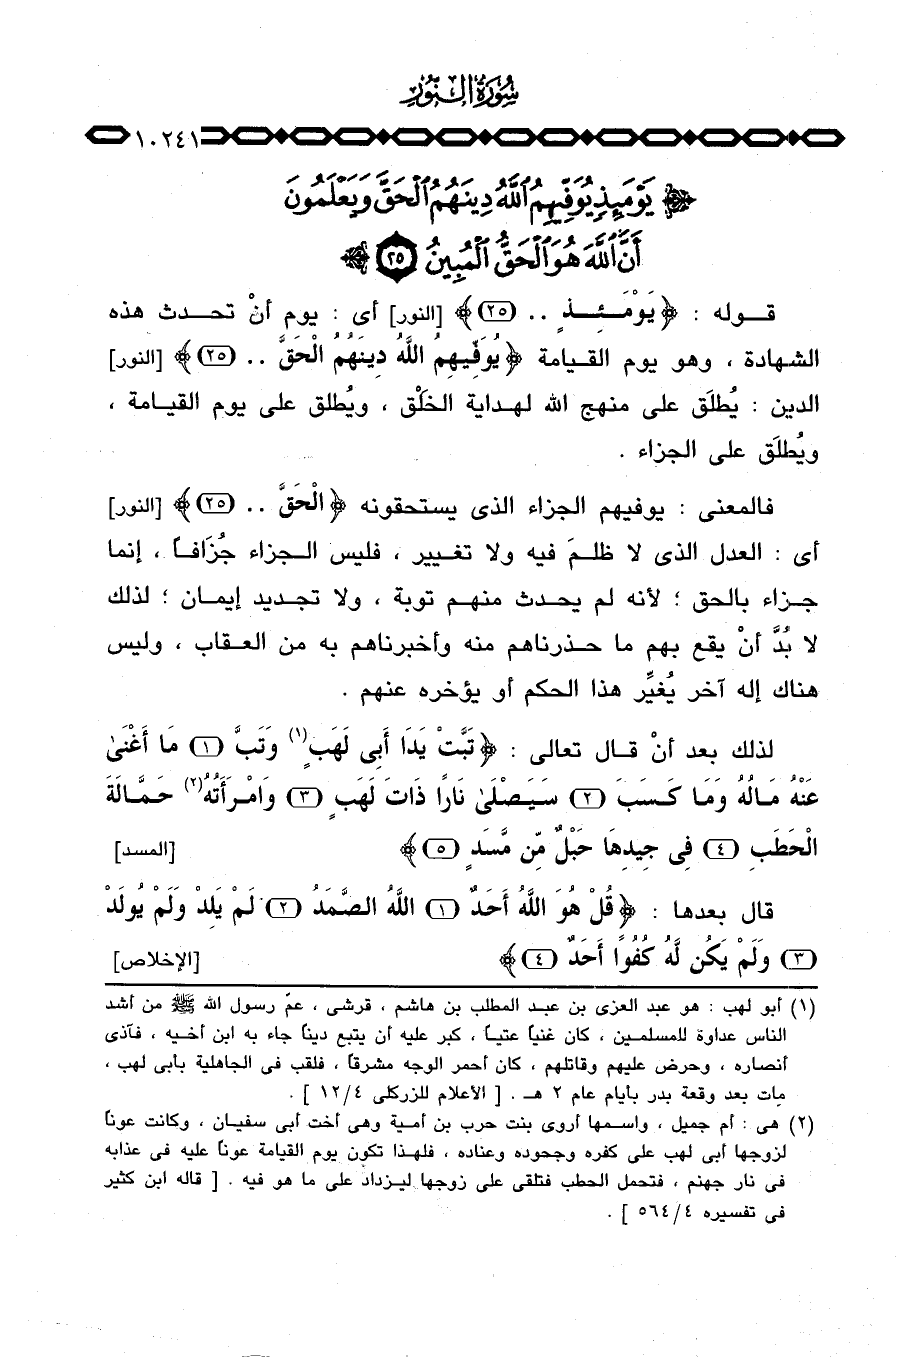 سُورَةُ النُّورِ
١٠٢٤١
﴿ يَوْمَئِذٍ يُوَفِّيهِمُ اللَّهُ دِينَهُمُ الْحَقَّ وَيَعْلَمُونَ
أَنَّ اللَّهَ هُوَ الْحَقُّ الْمُبِينُ ٢٥ ﴾
قـوله : ﴿ يَوْمَـئِـذٍ .. (٢٥) ﴾ [النور] أى : يوم أنْ تحـدث هذه
الشهادة ، وهو يوم القـيامة ﴿ يُوَفِّيهِمُ اللَّهُ دِينَهُمُ الْحَقَّ .. (٢٥) ﴾ [النور]
الدين : يُطلَق على منهج الله لهـداية الخلْق ، ويُطلق على يوم القيامة ،
ويُطلَق على الجزاء .
فالمعنى : يوفيهم الجزاء الذى يستحقونه ﴿ الْحَقَّ .. (٢٥) ﴾ [النور]
أى : العدل الذى لا ظلـمَ فيه ولا تغيير ، فليس الـجزاء جُزَافـاً ، إنما
جـزاء بالحق ؛ لأنه لم يحـدث منهـم توبة ، ولا تجـديد إيمـان ؛ لذلك
لا بُدَّ أنْ يقع بهم ما حـذرناهم منه وأخبرناهم به من العـقاب ، وليس
هناك إله آخر يُغيِّر هذا الحكم أو يؤخره عنهم .
لذلك بعد أنْ قـال تعالى : ﴿ تَبَّتْ يَدَا أَبِى لَهَبٍ(١) وَتَبَّ (١) مَا أَغْنَىٰ
عَنْهُ مَـالُهُ وَمَـا كَـسَبَ (٢) سَـيَـصْلَىٰ نَارًا ذَاتَ لَهَبٍ (٣) وَامْـرَأَتُهُ(٢) حَمَّـالَةَ
الْحَطَبِ (٤) فِى جِيدِهَا حَبْلٌ مِّن مَّسَدٍ (٥) ﴾ [المسد]
قال بعدها : ﴿ قُلْ هُوَ اللَّهُ أَحَدٌ (١) اللَّهُ الصَّمَدُ (٢) لَمْ يَلِدْ وَلَمْ يُولَدْ
(٣) وَلَمْ يَكُن لَّهُ كُفُوًا أَحَدٌ (٤) ﴾ [الإخلاص]
(١) أبو لهب : هو عبد العزى بن عبـد المطلب بن هاشم ، قرشى ، عمّ رسول الله ﷺ من أشد
الناس عداوة للمسلمـين ، كان غنياً عتيـاً ، كبر عليه أن يتبع ديناً جاء به ابن أخيـه ، فـآذى
أنصاره ، وحرض عليهم وقاتلهم ، كان أحمر الوجه مشرقاً ، فلقب فى الجاهلية بأبى لهب ،
مات بعد وقعة بدر بأيام عام ٢ هـ . [ الأعلام للزركلى ١٢/٤ ] .
(٢) هى : أم جميل ، واسـمها أروى بنت حرب بن أمـية وهى أخت أبى سفيـان ، وكانت عوناً
لزوجها أبى لهب على كفره وجحوده وعناده ، فلهـذا تكون يوم القيامة عوناً عليه فى عذابه
فى نار جهنم ، فتحمل الحطب فتلقى على زوجها ليـزداد على ما هو فيه . [ قاله ابن كثير
فى تفسيره ٥٦٤/٤ ] .